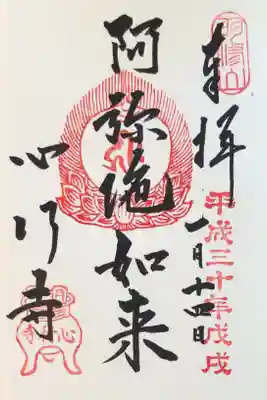 奉拝
平成三十年戊戌
一月十四日
阿弥陀如来
心行寺